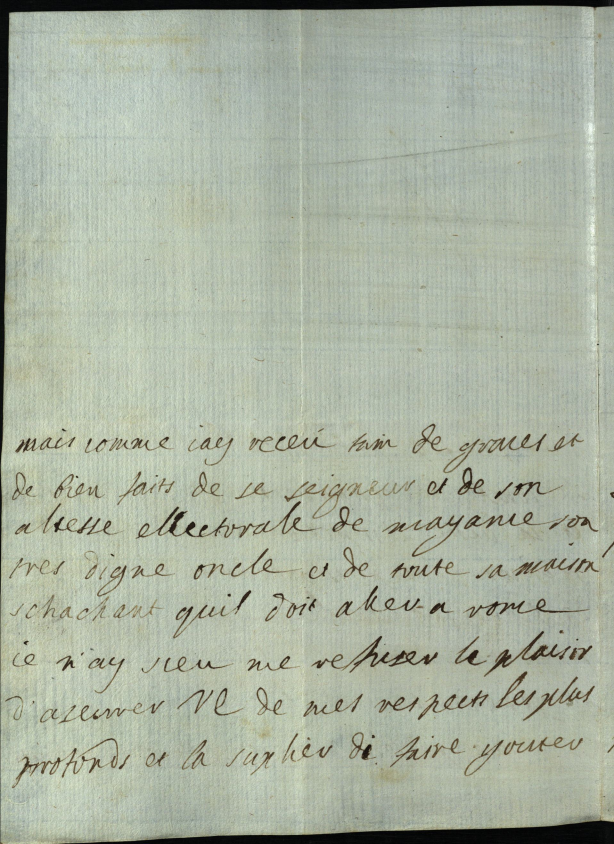 mais comme iay receü tam de graces et
de bien faits de se seigneur et de son
altesse ellectorale de mayance son
tres digne oncle et de toute sa maison
schachant quil doit aller a rome
ie n'ay sceu me refuser le plaisir
d'aseurer VE de mes respects les plus
profonds et la suplier di faire youter